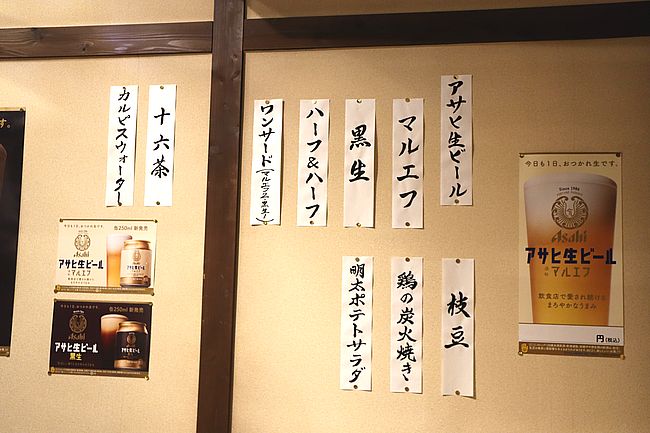 アサヒ生ビール
マルエフ
黒生
ハーフ&ハーフ
ワンサード(マルエフ2:黒生1)
枝豆
鶏の炭火焼き
明太ポテトサラダ
十六茶
カルピスウォーター
今日も1日、おつかれ生です。
Since 1986
Asahi
アサヒ生ビール
通称
マルエフ
飲食店で愛され続ける
まろやかなうまみ
円(税込)
今日も1日、おつかれ生です。
缶250ml 新発売
Asahi
アサヒ生ビール
通称
マルエフ
今日も1日、おつかれ生です。
缶250ml 新発売
Asahi
アサヒ生ビール
黒生
す。